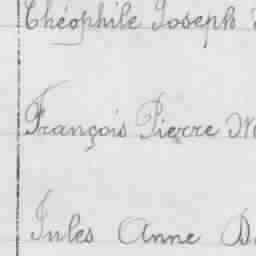 Théophile Joseph
François Pierre
Jules Anne